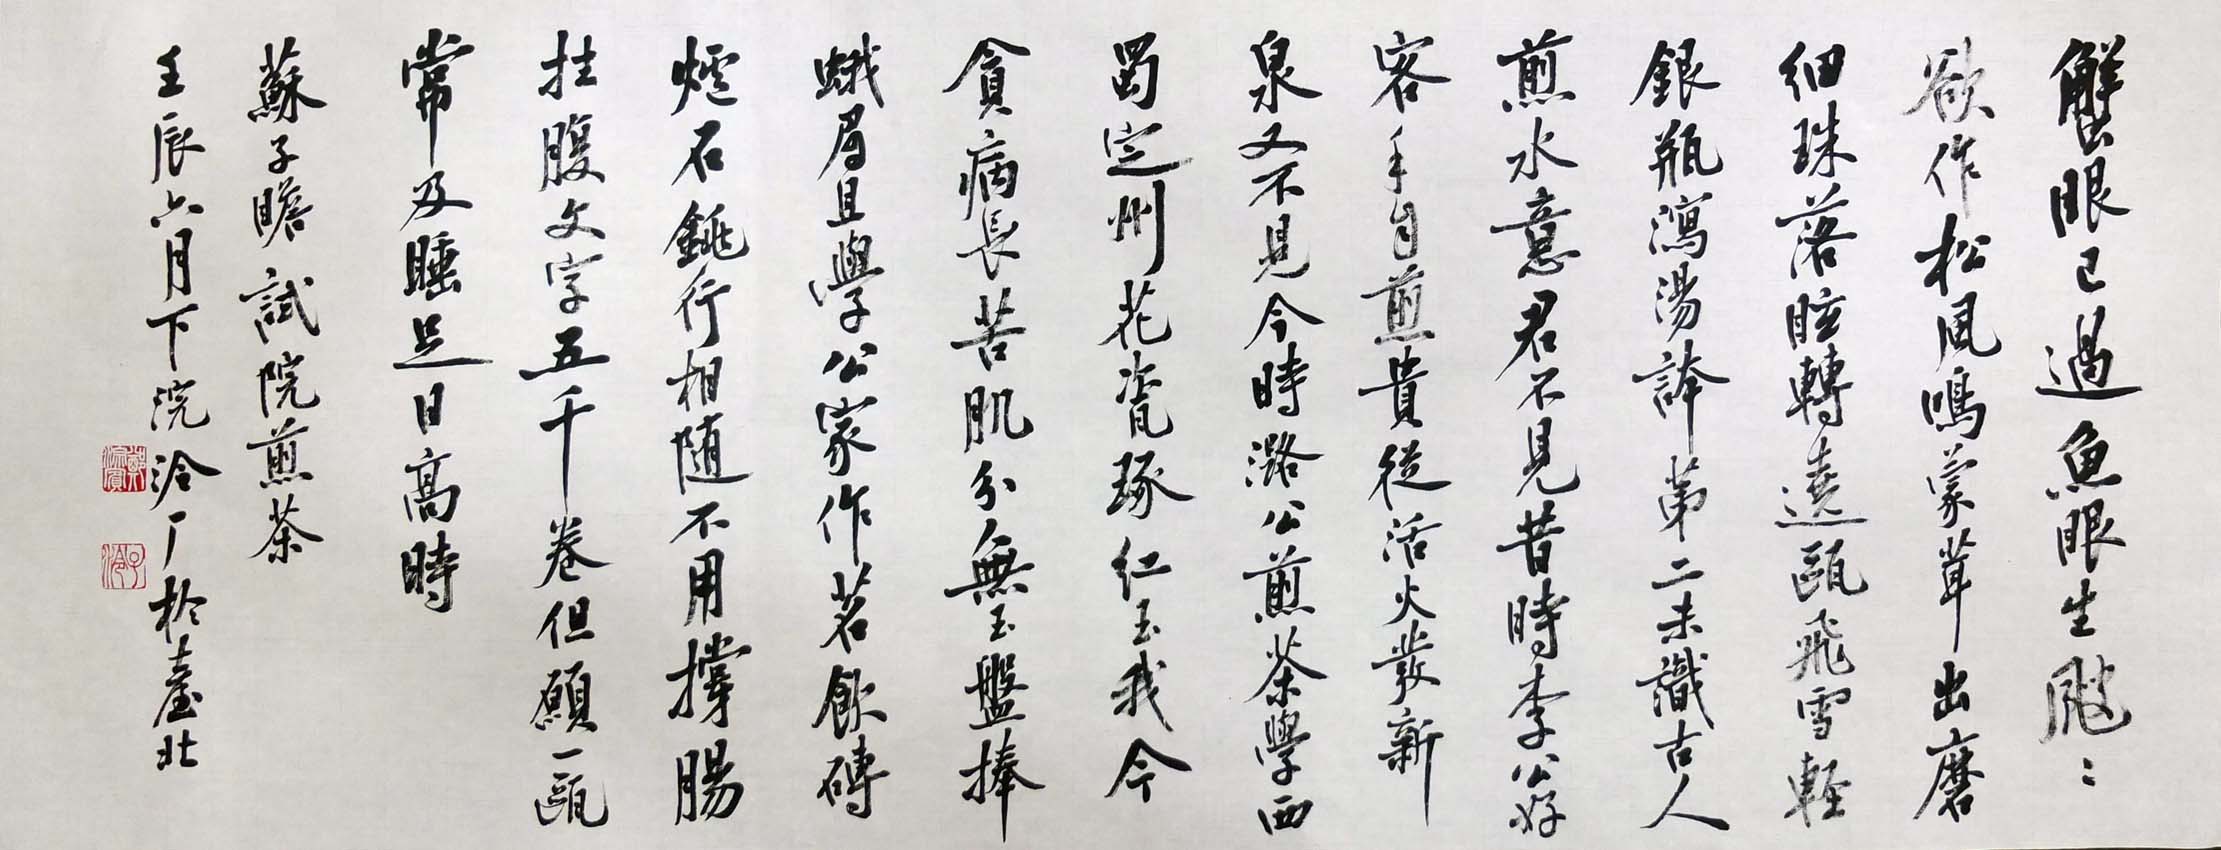 蟹眼已過魚眼生颼〻
欲作松風鳴蒙茸出磨
細珠落眩轉遶甌飛雪輕
銀瓶瀉湯誇第二未識古人
煎水意君不見昔時李公好
客手自煎貴從活火發新
泉又不見今時潞公煎茶學西
蜀定州花瓷琢紅玉我今
貧病長苦肌分無玉盤捧
蛾眉且學公家作茗飲磚
爐石銚行相隨不用撐腸
拄腹文字五千卷但願一甌
常及睡足日高時
蘇子瞻試院煎茶
壬辰六月下浣冷厂於臺北